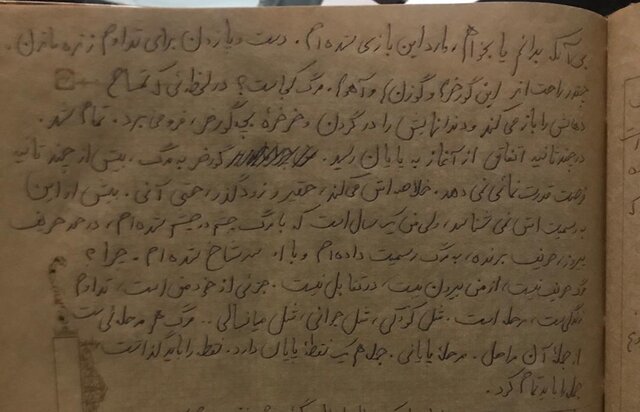 بی‌آنکه بدانم یا بخواهم، وارد این بازی شده‌ام. دست و پا زدن برای تداوم زنده ماندن.
چقدر راحت‌اند این گورخر و گوزن و آهو. مرگ کجاست؟ در لحظه‌ئی که تمساح
دهانش را باز می‌کند و دندانهایش را در گردن و خرخرهٔ بچه‌گورخر، فرو می‌برد. تمام شد.
در چند ثانیه اتفاقی از آغاز به پایان رسید. گورخر به مرگ، بیش از چند ثانیه
فرصت قدرت نمائی نمی‌دهد. خلاصه‌اش می‌کند، حقیر و زودگذر، حتی آنی. بیش از این
به رسمیت‌اش نمی‌شناسد، ولی من سال است که با مرگ چشم در چشم شده‌ام، در حد حریف
پیروز، حریف برنده، به مرگ رسمیت داده‌ام و با او شاخ شده‌ام. چرا؟
مرگ حریف نیست، از من بیرون نیست، در تقابل نیست. جزئی از خود من است، تداوم
زندگی‌ست، مرحله است. مثل کودکی، مثل جوانی، مثل میانسالی.. مرگ هم مرحله‌ئی‌ست
از جملهٔ آن مراحل. مرحلهٔ پایانی. جمله هم یک نقطهٔ پایان دارد. نقطه را باید گذاشت،
جمله را باید تمام کرد.